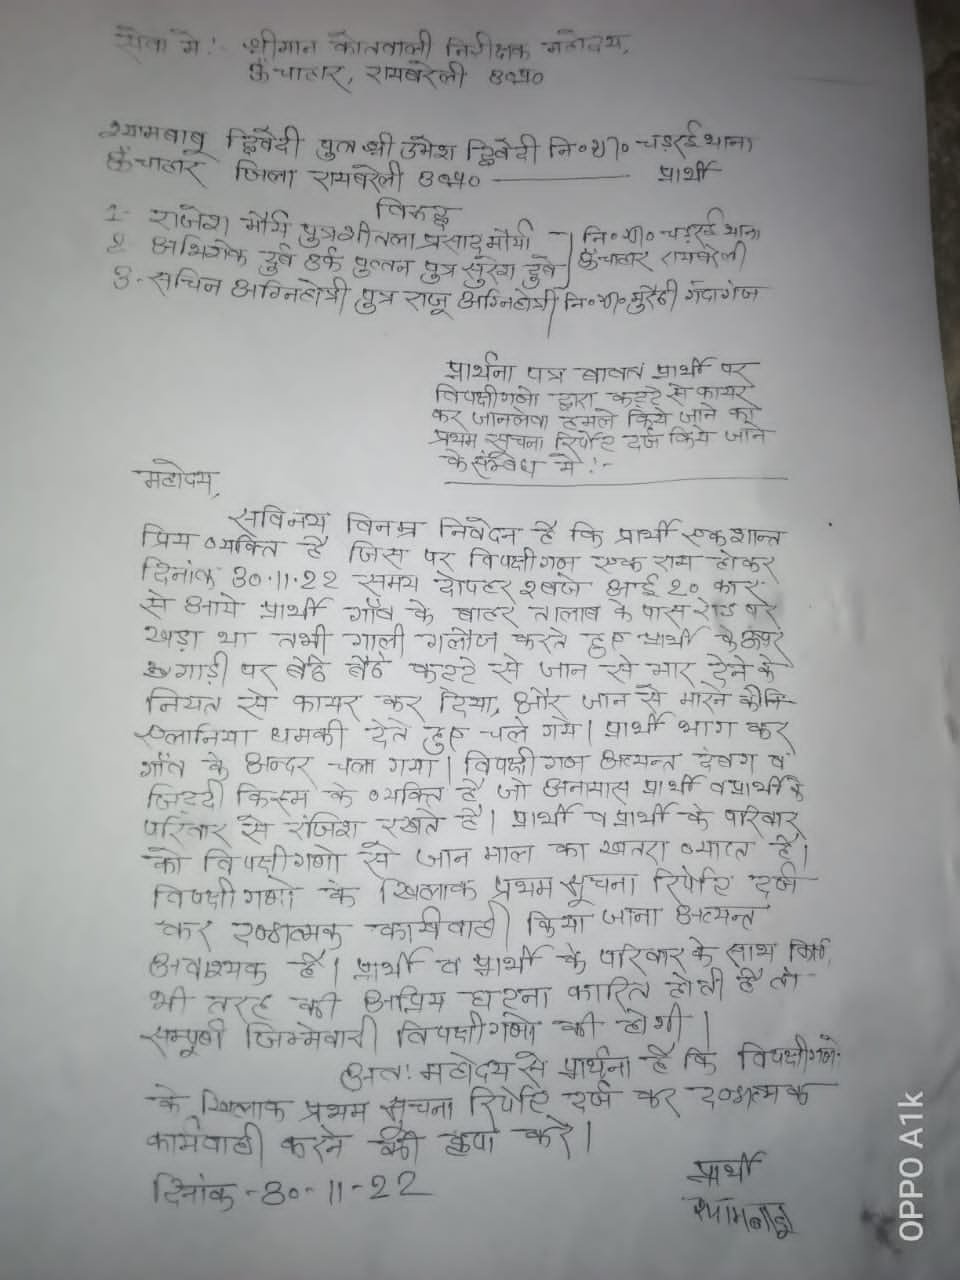 सेवा मे :- श्रीमान कोतवाली निरीक्षक महोदय,
ऊँचाहार, रायबरेली उ०प्र०
श्यामबाबू द्विवेदी पुत्र श्री उमेश द्विवेदी नि०ग्रा० चड़रई थाना
ऊँचाहार जिला रायबरेली उ०प्र० ——— प्रार्थी
विरुद्ध
1- राजेश मौर्य पुत्र शीतला प्रसाद मौर्या नि०ग्रा० चड़रई थाना
2 अभिषेक दुबे उर्फ पुत्र सुरेश दुबे ऊँचाहार रायबरेली
3- सचिन अग्निहोत्री पुत्र राजू अग्निहोत्री नि०ग्रा० गदागंज
प्रार्थना पत्र बावत प्रार्थी पर
विपक्षीगणो द्वारा कट्टे से फायर
कर जानलेवा हमले किये जाने का
प्रथम सूचना रिर्पोट दर्ज किये जाने
के संम्बंध मे :-
महोदय,
सविनय विनम्र निवेदन है कि प्रार्थी एक शान्त
प्रिय व्यक्ति है जिस पर विपक्षीगण एक राय होकर
दिनांक 30.11.22 समय दोपहर 2 बजे आई 20 कार
से आये प्रार्थी गाँव के बाहर तालाब के पास रोड पर
खड़ा था तभी गाली गलौज करते हुए प्रार्थी के ऊपर
गाड़ी पर बैठे बैठे कट्टे से जान से मार देने के
नियत से फायर कर दिया, और जान से मारने की
एलानिया धमकी देते हुए चले गये। प्रार्थी भाग कर
गाँव के अन्दर चला गया। विपक्षीगण अत्यन्त दबंग व
जिद्दी किस्म के व्यक्ति है जो अनायास प्रार्थी व प्रार्थी के
परिवार से रंजिश रखते है। प्रार्थी व प्रार्थी के परिवार
को विपक्षीगणो से जान माल का खतरा व्याप्त है।
विपक्षीगणो के खिलाफ प्रथम सूचना रिर्पोट दर्ज
कर दण्डात्मक कार्यवाही किया जाना अत्यन्त
आवश्यक है। प्रार्थी व प्रार्थी के परिवार के साथ किसी
भी तरह की अप्रिय घटना कारित होती है तो
सम्पूर्ण जिम्मेवारी विपक्षीगणो की होगी।
अतः महोदय से प्रार्थना है कि विपक्षीगणो
के खिलाफ प्रथम सूचना रिर्पोट दर्ज कर दण्डात्मक
कार्यवाही करने की कृपा करे।
दिनांक - 30-11-22
प्रार्थी
श्यामबाबू
OPPO A1k